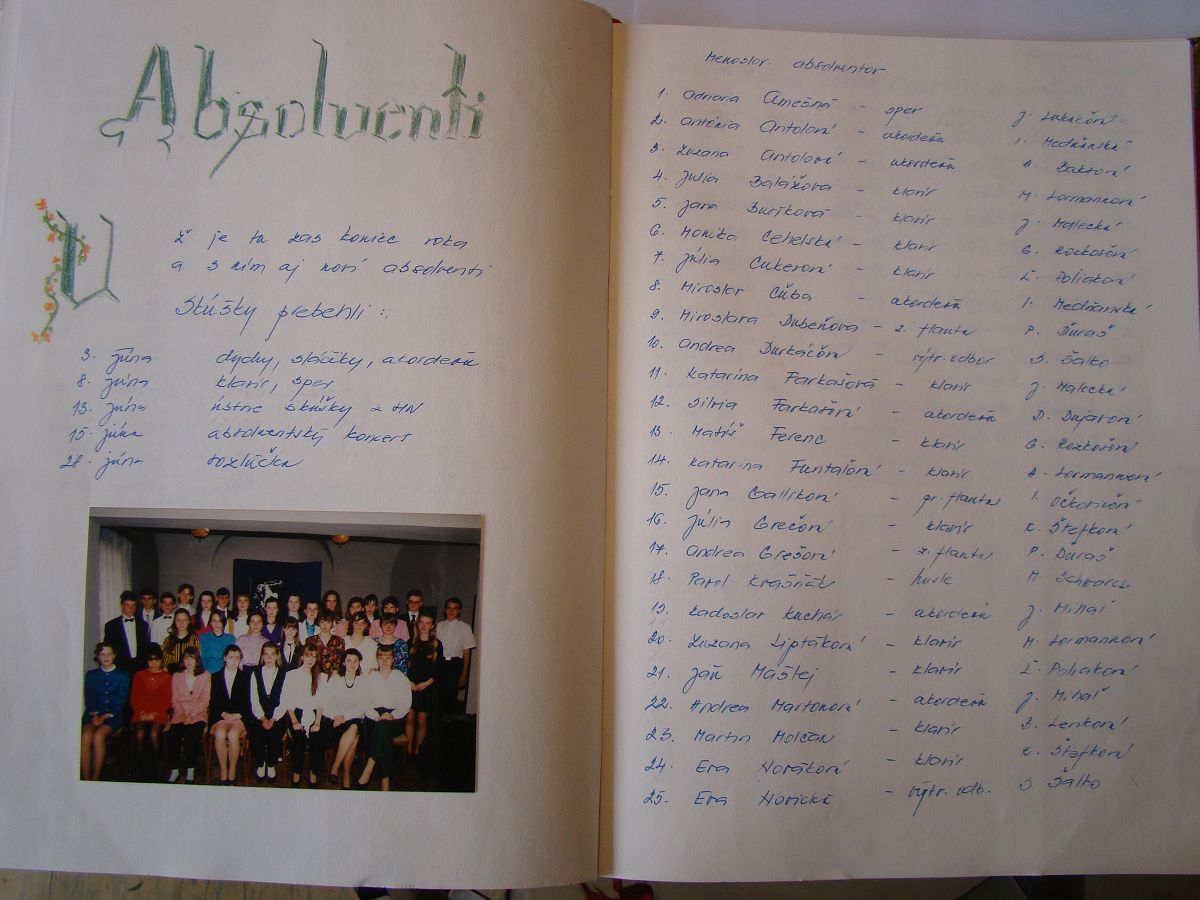 Absolventi
Už je tu zas koniec roka
a s ním aj noví absolventi
Skúšky prebehli :
3. júna dychy, sláčiky, akordeón
8. júna klavír, spev
13. júna ústne skúšky z HN
15. júna absolventský koncert
28. júna rozlúčka
Menoslov absolventov
1. Adriana Amešná - spev J. Lukáčová
2. Antónia Antolová - akordeón I. Medňanská
3. Zuzana Antolová - akordeón Baktová
4. Júlia Balážová - klavír M. Lormannová
5. Jana Buríková - klavír J. Malecká
6. Monika Cehelská - klavír G. Rozkošová
7. Júlia Cukerová - klavír Ľ. Poliaková
8. Miroslav Čuba - akordeón I. Medňanská
9. Miroslava Dubeňová - z. flauta P. Ďuraš
10. Andrea Durkáčová - výtv. odbor S. Šalko
11. Katarína Farkašová - klavír J. Malecká
12. Silvia Farkašová - akordeón D. Dujavová
13. Matúš Ferenc - klavír G. Rozkošová
14. Katarína Funtašová - klavír Lormannová
15. Jana Galliková - pr. flauta I. Očkovičová
16. Júlia Grečová - klavír Štefková
17. Andrea Grešová - z. flauta P. Ďuraš
18. Pavol Krášňák - husle M. Schwarcz
19. Radoslav Kuchár - akordeón J. Mihaľ
20. Zuzana Liptáková - klavír M. Lormannová
21. Ján Maštej - klavír Ľ. Poliaková
22. Andrea Martonová - akordeón J. Mihaľ
23. Martin Molčan - klavír B. Lenková
24. Eva Nováková - klavír Štefková
25. Eva Novická - výtv. odb. S. Šalko